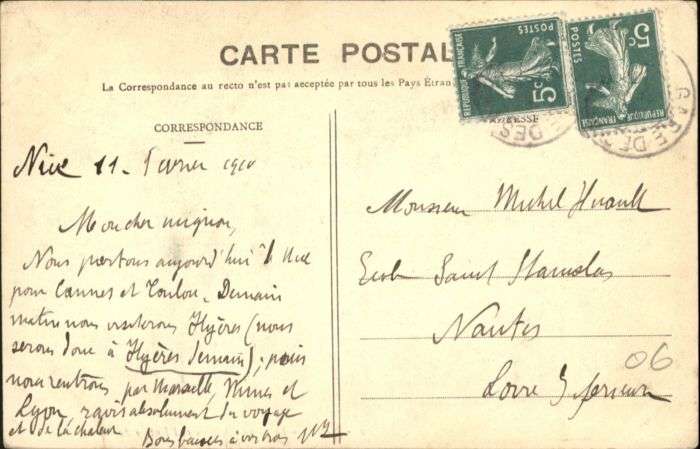 CARTE POSTAL
La Correspondance au recto n'est pas acceptée par tous les Pays Étran
CORRESPONDANCE
RÉPUBLIQUE FRANÇAISE
POSTES
5c
RÉPUBLIQUE FRANÇAISE
POSTES
5c
GARE DE
DES
RESSE
Nice 11 - février 1910
Mon cher mignon,
Nous partons aujourd'hui de Nice
pour Cannes et Toulon. Demain
matin nous visiterons Hyères (nous
serons donc à Hyères demain); puis
nous rentrons par Marseille, Nimes et
Lyon, ravis absolument du voyage
et de la chaleur
Bons baisers à vous trois
Monsieur Michel Huault
Ecole Saint Stanislas
Nantes
Loire Inférieure
06